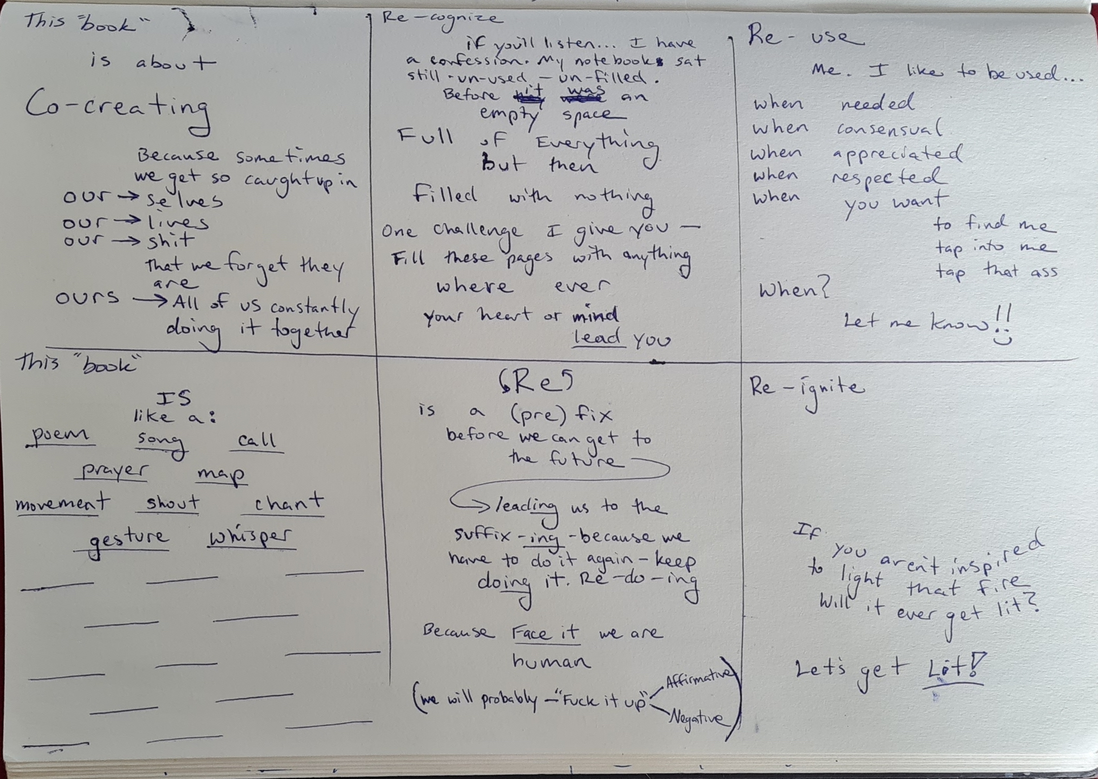 This "book"
is about
Co-creating
Because sometimes
we get so caught up in
our → selves
our → lives
our → shit
that we forget they
are
ours → All of us constantly
doing it together
Re-cognize
if you'll listen... I have
a confession. My notebooks sat
still-un-used - un-filled.
Before it was an
empty space
Full of Everything
But then
filled with nothing
One challenge I give you —
Fill these pages with anything
where ever
your heart or mind
lead you
Re-use
Me. I like to be used...
when needed
when consensual
when appreciated
when respected
when you want
to find me
tap into me
tap that ass
When?
Let me know!!
This "book"
IS
like a:
poem song call
prayer map
movement shout chant
gesture whisper
(Re)
is a (pre) fix
before we can get to
the future
→ leading us to the
suffix -ing - because we
have to do it again - keep
doing it. Re-do-ing
Because Face it we are
human
(we will probably - "Fuck it up" Affirmative
Negative)
Re-ignite
If you aren't inspired
to light that fire
Will it ever get lit?
Let's get Lit!